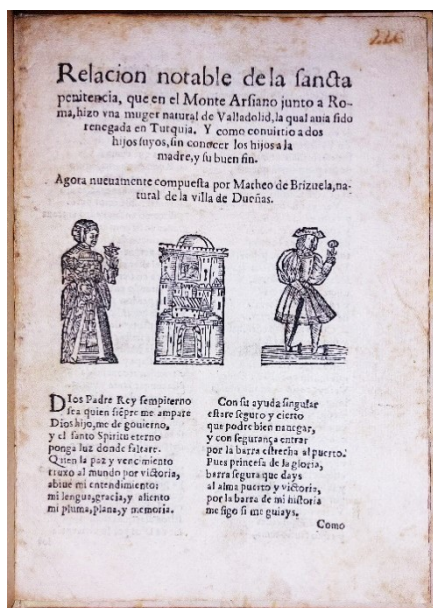 216
Relacion notable de la sancta
penitencia, que en el Monte Arsiano junto a Ro-
ma, hizo vna muger natural de Valladolid, la qual auia sido
renegada en Turquia. Y como conuirtio a dos
hijos suyos, sin conocer los hijos a la
madre, y su buen fin.
Agora nueuamente compuesta por Matheo de Brizuela, na-
tural de la villa de Dueñas.
DIos Padre Rey sempiterno
sea quien siẽpre me ampare
Dios hijo, me de gouierno,
y el santo Spiritu eterno
ponga luz donde faltare.
Quien la paz y vencimiento
truxo al mundo por victoria,
abiue mi entendimiento:
mi lengua, gracia, y aliento
mi pluma, plana, y memoria.
Con su ayuda singular
estare seguro y cierto
que podre bien nauegar,
y con segurança entrar
por la barra estrecha al puerto.
Pues princesa de la gloria,
barra segura que days
al alma puerto y victoria,
por la barra de mi historia
me sigo si me guiays.
Como